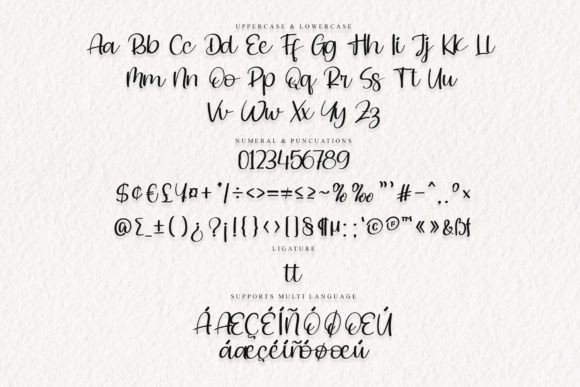 UPPERCASE & LOWERCASE
Aa Bb Cc Dd Ee Ff Gg Hh Ii Jj Kk Ll
Mm Nn Oo Pp Qq Rr Ss Tt Uu
Vv Ww Xx Yy Zz
NUMERAL & PUNCUATIONS
0123456789
$¢€£¥¤+*/÷<>=≠≤≥~%‰"'#-^,.ºx
@Σ_±()¿?¡!{}‹›[]§¶µ:;'©®™«»&ßf
LIGATURE
tt
SUPPORTS MULTI LANGUAGE
ÁÆÇÉÍÑÓØŒÚ
áæçéíñóøœú